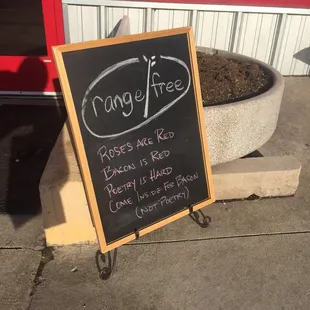 range free
Roses are Red
Bacon is Red
Poetry is Hard
Come Inside For Bacon
(Not Poetry)